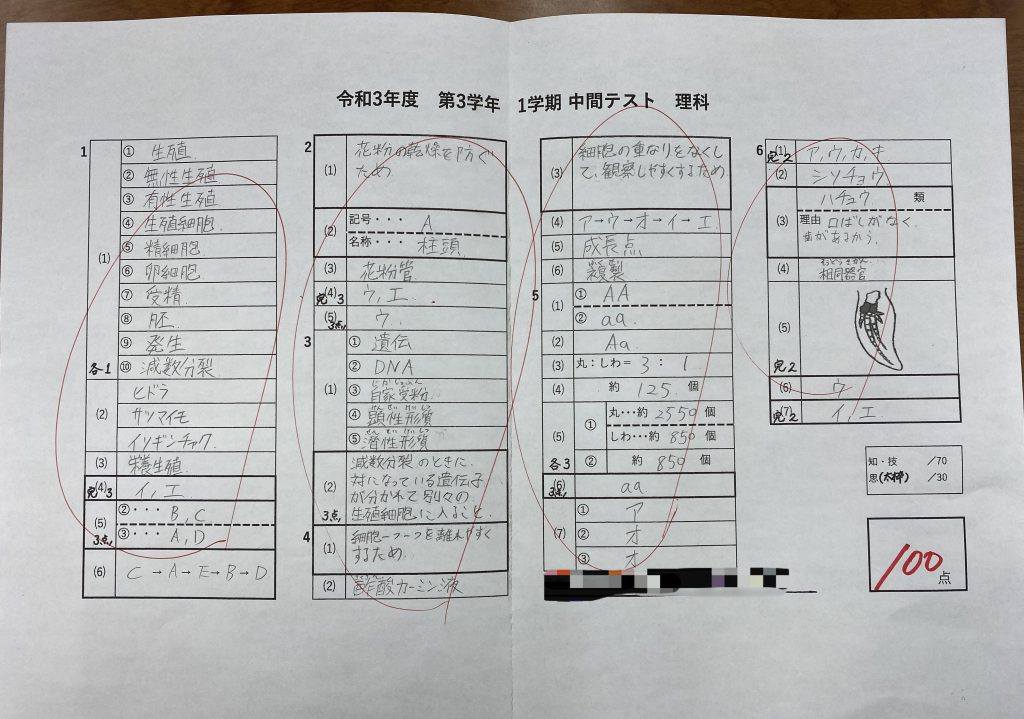 令和3年度 第3学年 1学期 中間テスト 理科
1
(1)
① 生殖
② 無性生殖
③ 有性生殖
④ 生殖細胞
⑤ 精細胞
⑥ 卵細胞
⑦ 受精
⑧ 胚
⑨ 発生
各1 ⑩ 減数分裂
(2)
ヒドラ
サツマイモ
イソギンチャク
(3) 栄養生殖
(4) イ, エ
完3
(5) ②・・・ B, C
3点 ③・・・ A, D
(6) C→A→E→B→D
2
(1) 花粉の乾燥を防ぐ
ため.
(2) 記号・・・ A
名称・・・ 柱頭
(3) 花粉管
(4) ウ, エ.
完 3
(5) ウ.
3点
3
(1)
① 遺伝
② DNA
③ 自家受粉
④ 顕性形質
⑤ 潜性形質
(2) 減数分裂のときに.
対になっている遺伝子
が分かれて別々の
3点 生殖細胞に入ること.
4
(1) 細胞一つ一つを離れやすく
するため.
(2) 酢酸カーミン液
(3) 細胞の重なりをなくし
て,観察しやすくするため
(4) ア→ウ→オ→イ→エ
(5) 成長点
(6)
5
(1) ① AA
② aa
(2) Aa
(3) 丸:しわ= 3 : 1
(4) 約 125 個
(5) ① 丸・・・約 2550 個
しわ・・・約 850 個
各3 ② 約 850 個
(6) aa
3点
(7)
① ア
② オ
③ オ
6
(1) ア,ウ,カ,キ
完2
(2) シソチョウ
(3) ハチュウ 類
理由 口ばしがなく
歯があるから.
(4) 相同器官
(5)
完2
(6) ウ
(7) イ, エ
完2
知・技 /70
思(太枠) /30
100 点